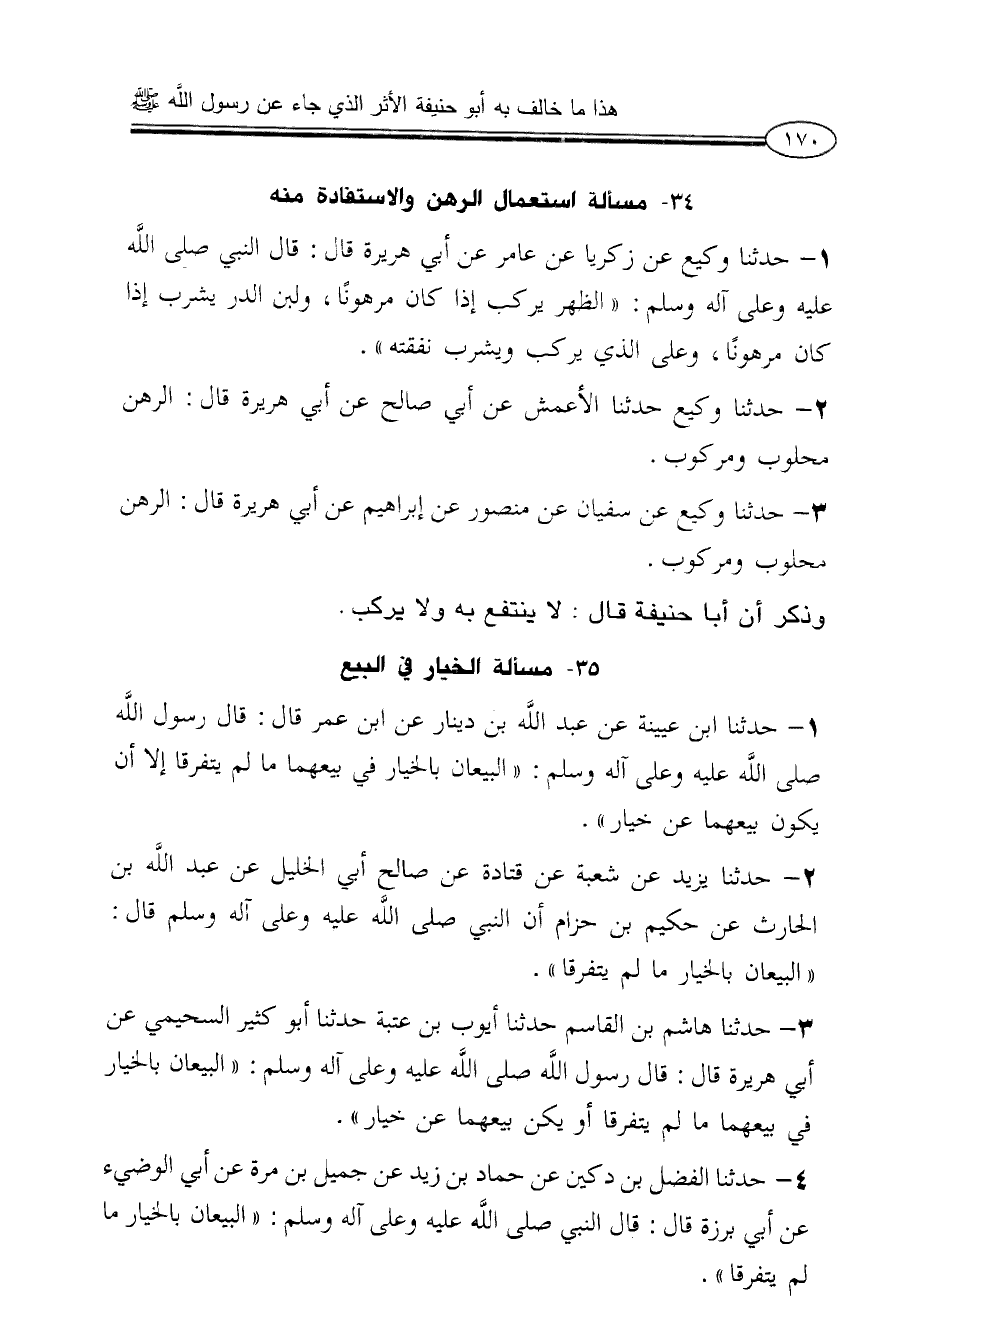 هذا ما خالف به أبو حنيفة الأثر الذي جاء عن رسول اللَّه ﷺ
١٧٠
٣٤- مسألة استعمال الرهن والاستفادة منه
١- حدثنا وكيع عن زكريا عن عامر عن أبي هريرة قال : قال النبي صلى اللَّه
عليه وعلى آله وسلم : « الظهر يركب إذا كان مرهونًا ، ولبن الدر يشرب إذا
كان مرهونًا ، وعلى الذي يركب ويشرب نفقته » .
٢- حدثنا وكيع حدثنا الأعمش عن أبي صالح عن أبي هريرة قال : الرهن
محلوب ومركوب .
٣- حدثنا وكيع عن سفيان عن منصور عن إبراهيم عن أبي هريرة قال : الرهن
محلوب ومركوب .
وذكر أن أبا حنيفة قال : لا ينتفع به ولا يركب .
٣٥- مسألة الخيار في البيع
١- حدثنا ابن عيينة عن عبد اللَّه بن دينار عن ابن عمر قال : قال رسول اللَّه
صلى اللَّه عليه وعلى آله وسلم : « البيعان بالخيار في بيعهما ما لم يتفرقا إلا أن
يكون بيعهما عن خيار » .
٢- حدثنا يزيد عن شعبة عن قتادة عن صالح أبي الخليل عن عبد اللَّه بن
الحارث عن حكيم بن حزام أن النبي صلى اللَّه عليه وعلى آله وسلم قال :
« البيعان بالخيار ما لم يتفرقا » .
٣- حدثنا هاشم بن القاسم حدثنا أيوب بن عتبة حدثنا أبو كثير السحيمي عن
أبي هريرة قال : قال رسول اللَّه صلى اللَّه عليه وعلى آله وسلم : « البيعان بالخيار
في بيعهما ما لم يتفرقا أو يكن بيعهما عن خيار » .
٤- حدثنا الفضل بن دكين عن حماد بن زيد عن جميل بن مرة عن أبي الوضيء
عن أبي برزة قال : قال النبي صلى اللَّه عليه وعلى آله وسلم : « البيعان بالخيار ما
لم يتفرقا » .